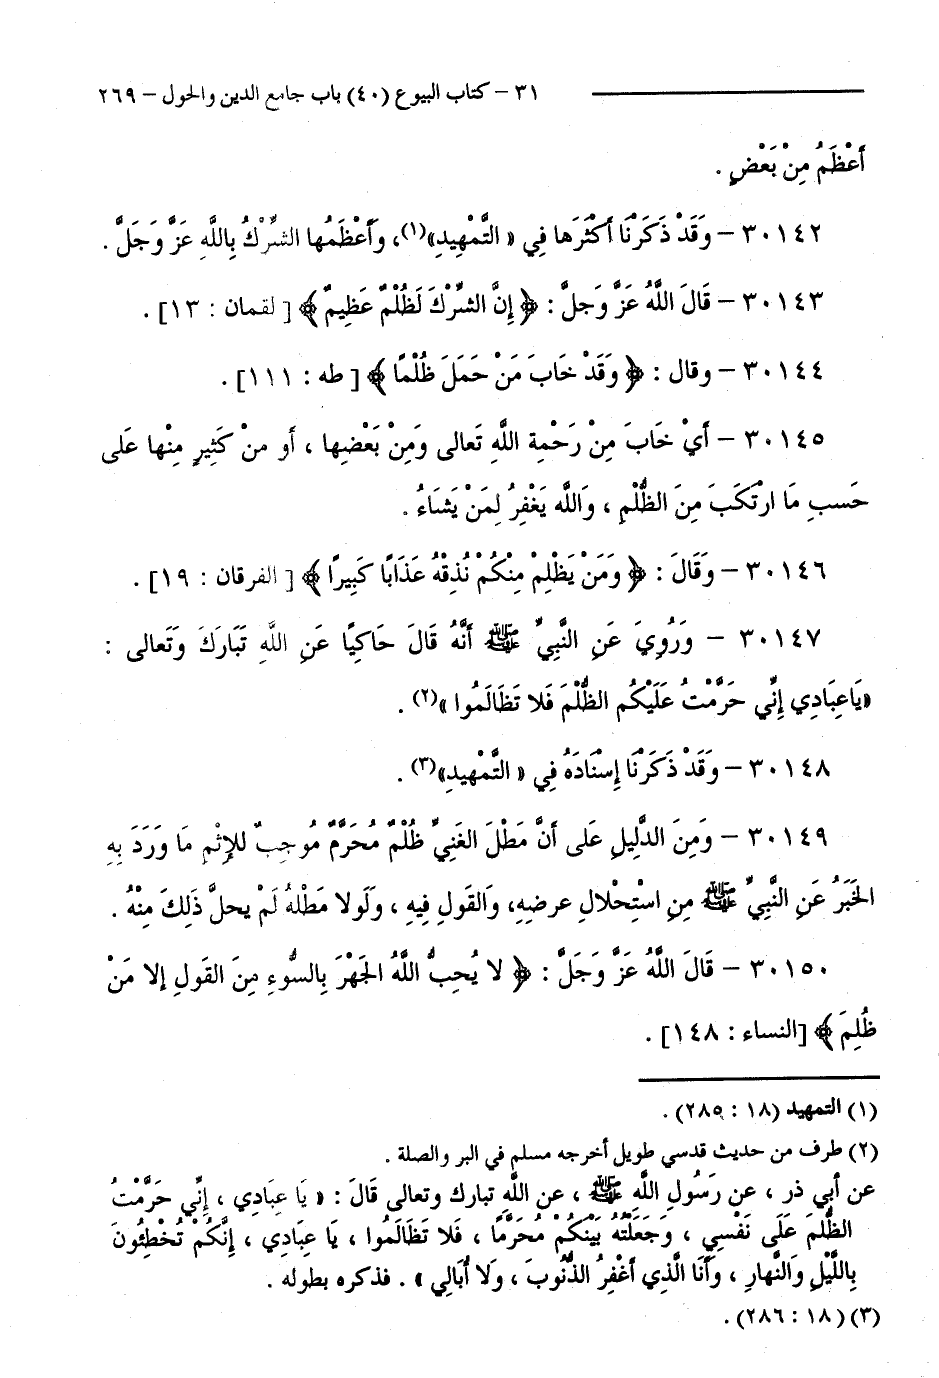 ٣١ – كتاب البيوع (٤٠) باب جامع الدين والحول – ٢٦٩
أَعْظَمُ مِنْ بَعْضٍ .
٣٠١٤٢ – وَقَدْ ذَكَرْنَا أَكْثَرَها فِي « التَّمْهِيدِ»(١)، وَأَعْظَمُها الشِّرْكُ بِاللَّهِ عَزَّ وَجَلَّ .
٣٠١٤٣ – قَالَ اللَّهُ عَزَّ وَجلَّ : ﴿ إِنَّ الشِّرْكَ لَظُلْمٌ عَظِيمٌ ﴾ [ لقمان : ١٣] .
٣٠١٤٤ – وقال : ﴿ وَقَدْ خَابَ مَنْ حَمَلَ ظُلْمًا ﴾ [ طه : ١١١] .
٣٠١٤٥ – أَيْ خَابَ مِنْ رَحْمةِ اللَّهِ تَعالى وَمِنْ بَعْضِها ، أو منْ كَثِيرٍ مِنْها عَلى
حَسبِ مَا ارْتَكَبَ مِنَ الظُّلْمِ ، وَاللَّه يَغْفِرُ لِمَنْ يَشَاءُ .
٣٠١٤٦ – وَقَالَ : ﴿ وَمَنْ يَظْلِمْ مِنْكُمْ نُذِقْهُ عَذَابًا كَبِيرًا ﴾ [ الفرقان : ١٩] .
٣٠١٤٧ – وَرُوِيَ عَنِ النَّبِيِّ ﷺ أَنَّهُ قَالَ حَاكِيًا عَنِ اللَّهِ تَبَارَكَ وَتَعالى :
«يَاعِبَادِي إِنِّي حَرَّمْتُ عَلَيْكُم الظُّلْمَ فَلا تَظَالَمُوا »(٢) .
٣٠١٤٨ – وَقَدْ ذَكَرْنَا إِسْنَادَهُ فِي « التَّمْهيدِ»(٣) .
٣٠١٤٩ – وَمِنَ الدَّلِيلِ عَلى أَنَّ مَطْلَ الغَنِيِّ ظُلْمٌ مُحَرَّمٌ مُوجِبٌ للإِثْمِ مَا وَرَدَ بِهِ
الخَبَرُ عَنِ النَّبِيِّ ﷺ مِنِ اسْتِحْلالِ عرضِهِ، وَالقَولِ فِيهِ ، وَلَولا مَطْلهُ لَمْ يحلَّ ذَلِكَ مِنْهُ .
٣٠١٥٠ – قَالَ اللَّهُ عَزَّ وَجَلَّ : ﴿ لا يُحِبُّ اللَّهُ الجَهْرَ بِالسُّوءِ مِنَ القَولِ إلا مَنْ
ظُلِمَ ﴾ [النساء : ١٤٨] .
(١) التمهيد (١٨ : ٢٨٥) .
(٢) طرف من حديث قدسي طويل أخرجه مسلم في البر والصلة .
عن أبي ذر ، عن رَسُولِ اللَّهِ ﷺ ، عن اللَّهِ تبارك وتعالى قَالَ : « يَا عِبَادِي ، إِنِّي حَرَّمْتُ
الظُّلمَ عَلَى نَفْسِي ، وَجَعَلتُهُ بَيْنَكُمْ مُحَرَّمًا ، فَلا تَظَالَمُوا ، يَا عِبَادِي ، إِنَّكُمْ تُخْطِئُونَ
بِاللَّيْلِ وَالنَّهارِ ، وَأَنَا الَّذِي أَغْفِرُ الذُّنُوبَ ، وَلا أُبَالِي » . فذكره بطوله .
(٣) (١٨ : ٢٨٦) .